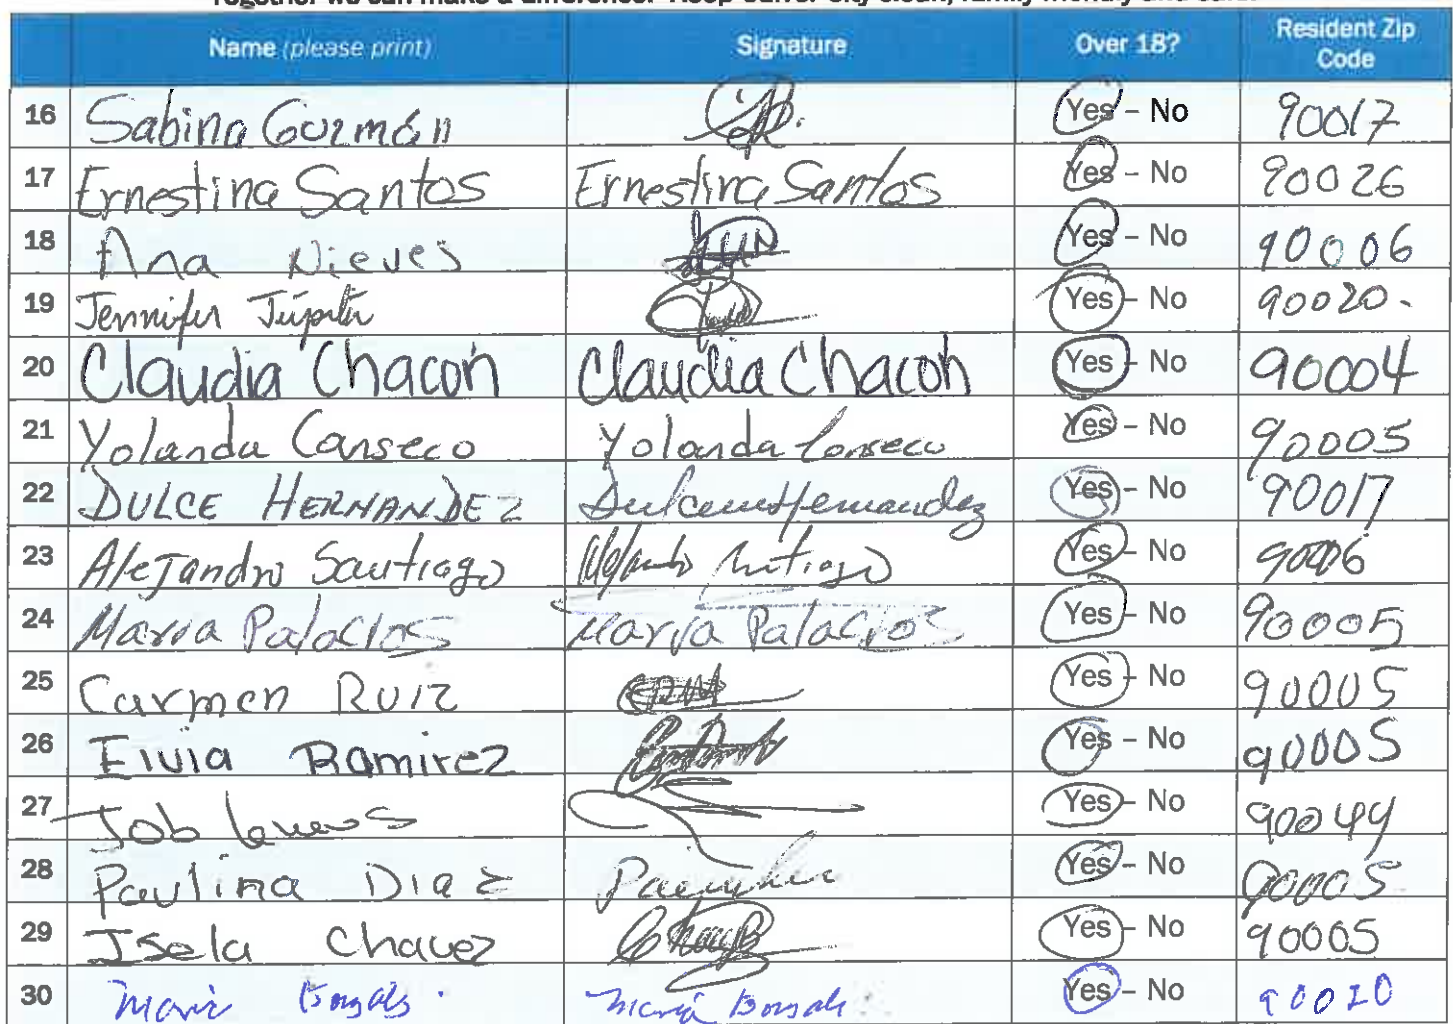 Together we can make a difference! Keep Culver City clean, family friendly and safe.
Name (please print) Signature Over 18? Resident Zip Code
16 Sabina Guzmán Yes - No 90017
17 Ernestina Santos Ernestina Santos Yes - No 90026
18 Ana Nieves Yes - No 90006
19 Jennifer Júpiter Yes - No 90020.
20 Claudia Chacon Claudia Chacon Yes - No 90004
21 Yolanda Canseco Yolanda Canseco Yes - No 90005
22 DULCE HERNANDEZ Hernandez Yes - No 90017
23 Alejandro Santiago Alejandro Santiago Yes - No 90006
24 Maria Palacios Maria Palacios Yes - No 90005
25 Carmen Ruiz Yes - No 90005
26 Elvia Ramirez Yes - No 90005
27 Job Yes - No 90044
28 Paulina Diaz Yes - No 90005
29 Isela Chavez Yes - No 90005
30 Maria Maria Yes - No 90020